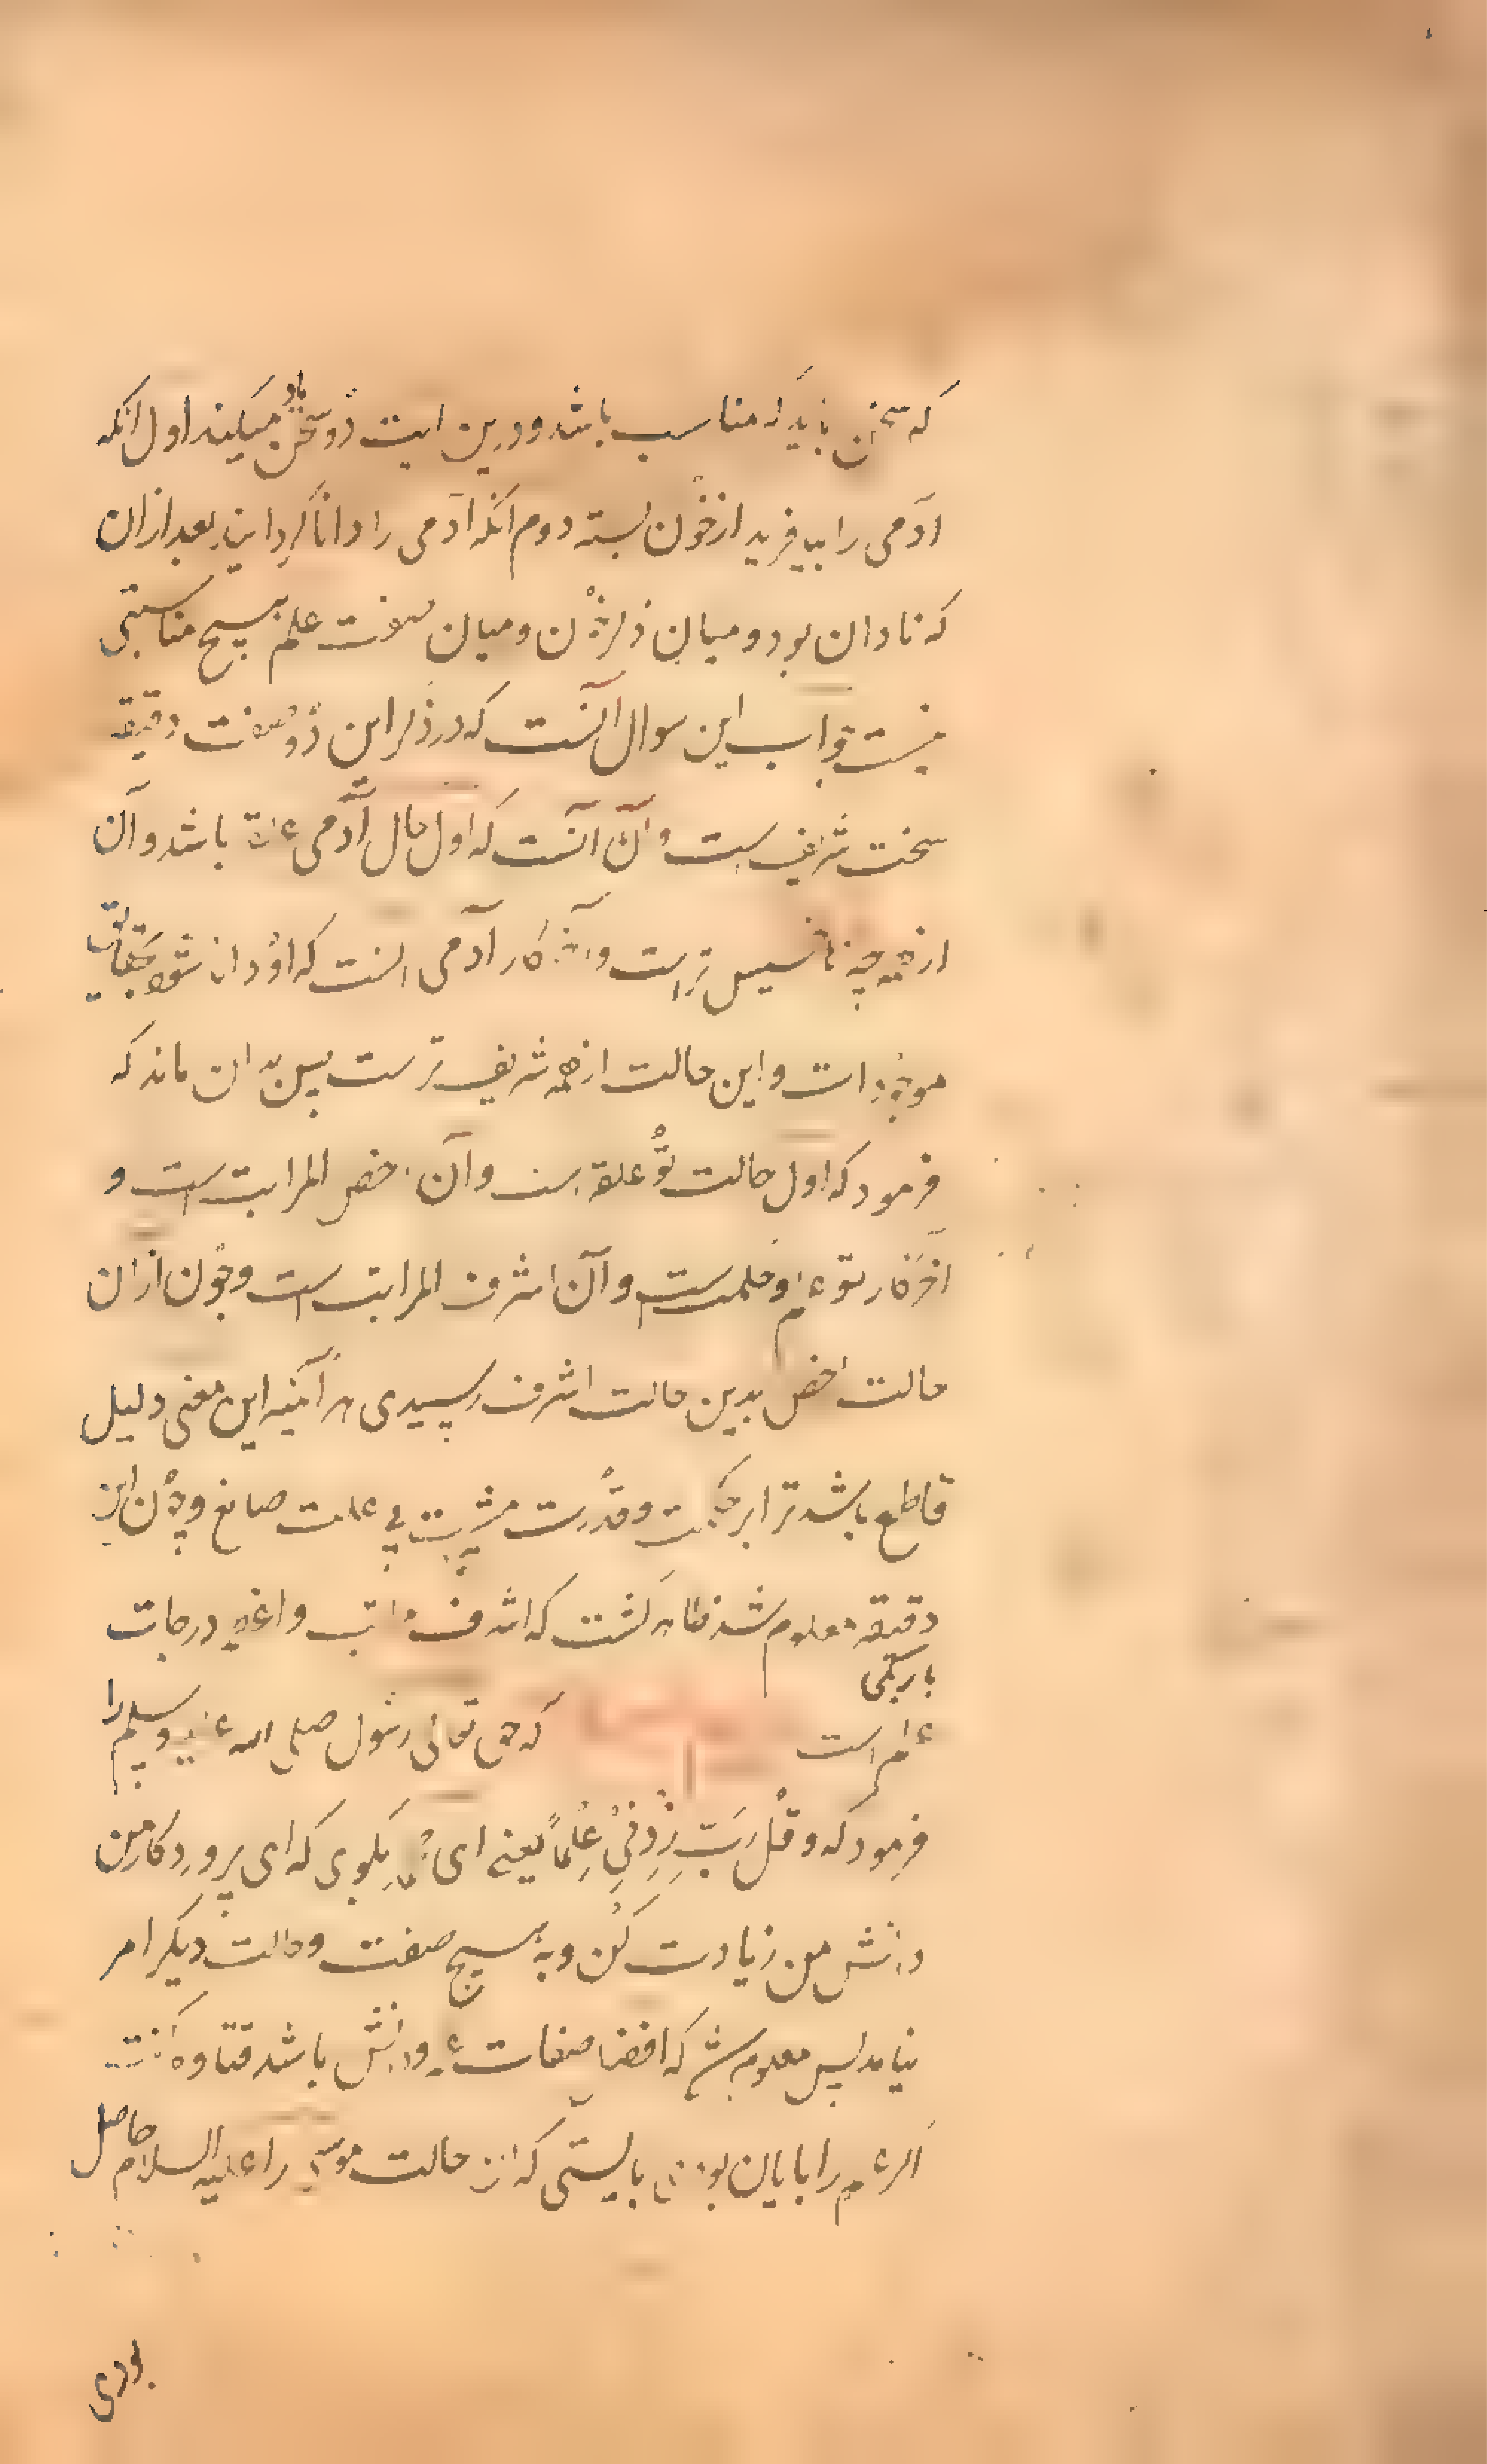 که سخن باید که مناسب باشد و درین ایت دو سخن یاد میکند اول انکه
ادمی را بیافرید از خون بسته دوم انکه ادمی را دانا کرداینید بعد ازان
که نادان بود و میان ذکر خون و میان صفت علم هیچ مناسبتی
نیست جواب این سوال آنست که در ذکر این دو صفت دقیقه
سخت شریف است و آن آنست که اول حال آدمی علقه باشد و آن
از همه چیزها خسیس تر است و آخر کار آدمی انست که او دانا شود بحقایق
موجودات و این حالت از همه شریف ترست پس بدان ماند که
فرمود که اول حالت تو علقه است و آن اخص المراتب است و
اخر کار تو علم و حکمت است و آن اشرف المراتب است و چون ازان
حالت اخص بدین حالت اشرف رسیدی هر آینه این معنی دلیل
قاطع باشد ترا بر حکمت و قدرت و مشیت بی علت صانع و چون این
دقیقه معلوم شد ظاهر کشت که اشرف مراتب و درجات
باریکی
علم است که حق تعالی رسول صلی الله علیه وسلم را
فرمود که وقل رب زدنی علما یعنی ای محمد بکوی که ای پروردکار من
دانش من زیادت کن و به هیچ صفت و حالت دیکر امر
نیامد پس معلوم شد که افضل صفات علم و دانش باشد قتاوه کفت
اکر علم را پایان بودی بایستی که ان حالت موسی را علیه السلام حاصل
بودی